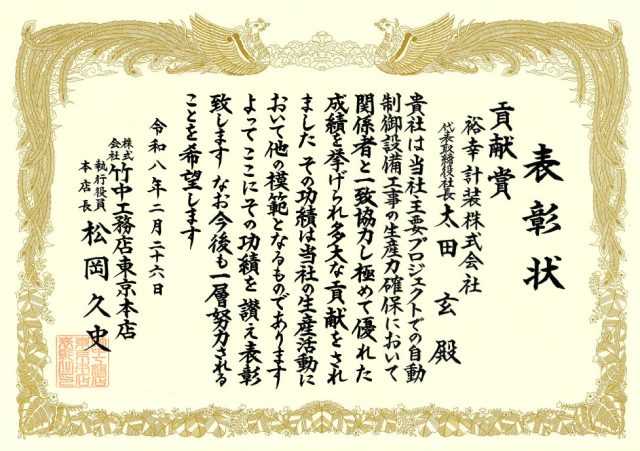 表彰状
貢献賞
裕幸計装株式会社
代表取締役社長 太田 玄 殿
貴社は当社主要プロジェクトでの自動
制御設備工事の生産力確保において
関係者と一致協力し極めて優れた
成績を挙げられ多大な貢献をされ
ました その功績は当社の生産活動に
おいて他の模範となるものであります
よってここにその功績を讃え表彰
致します なお今後も一層努力される
ことを希望します
令和八年二月二十六日
株式会社 竹中工務店東京本店
執行役員
本店長 松岡久史